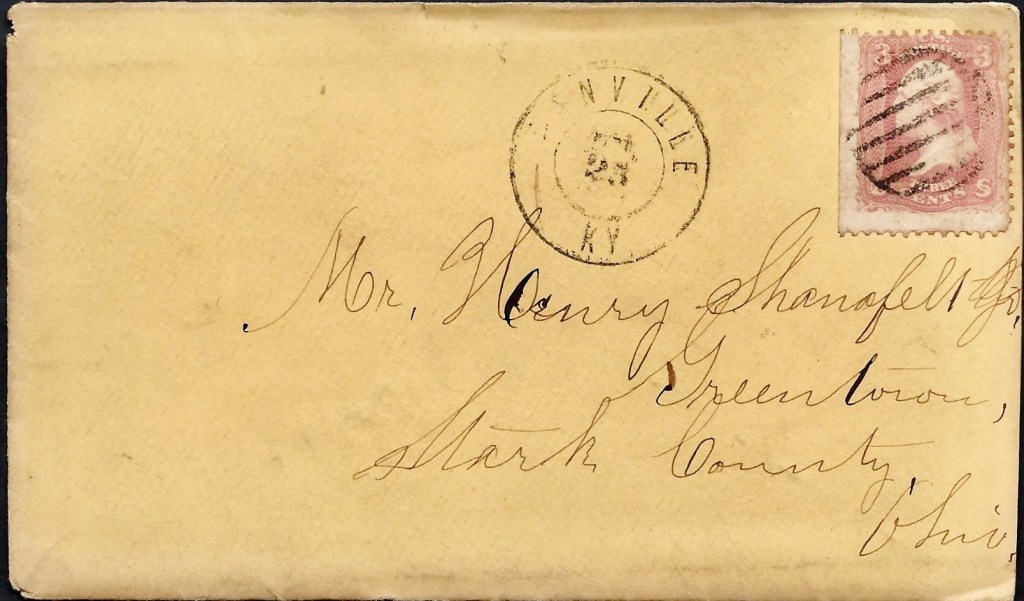 KY.
25
3 3
CENTS
Mr. Henry Shanafelt Jr.
Greentown,
Stark County,
Ohio.